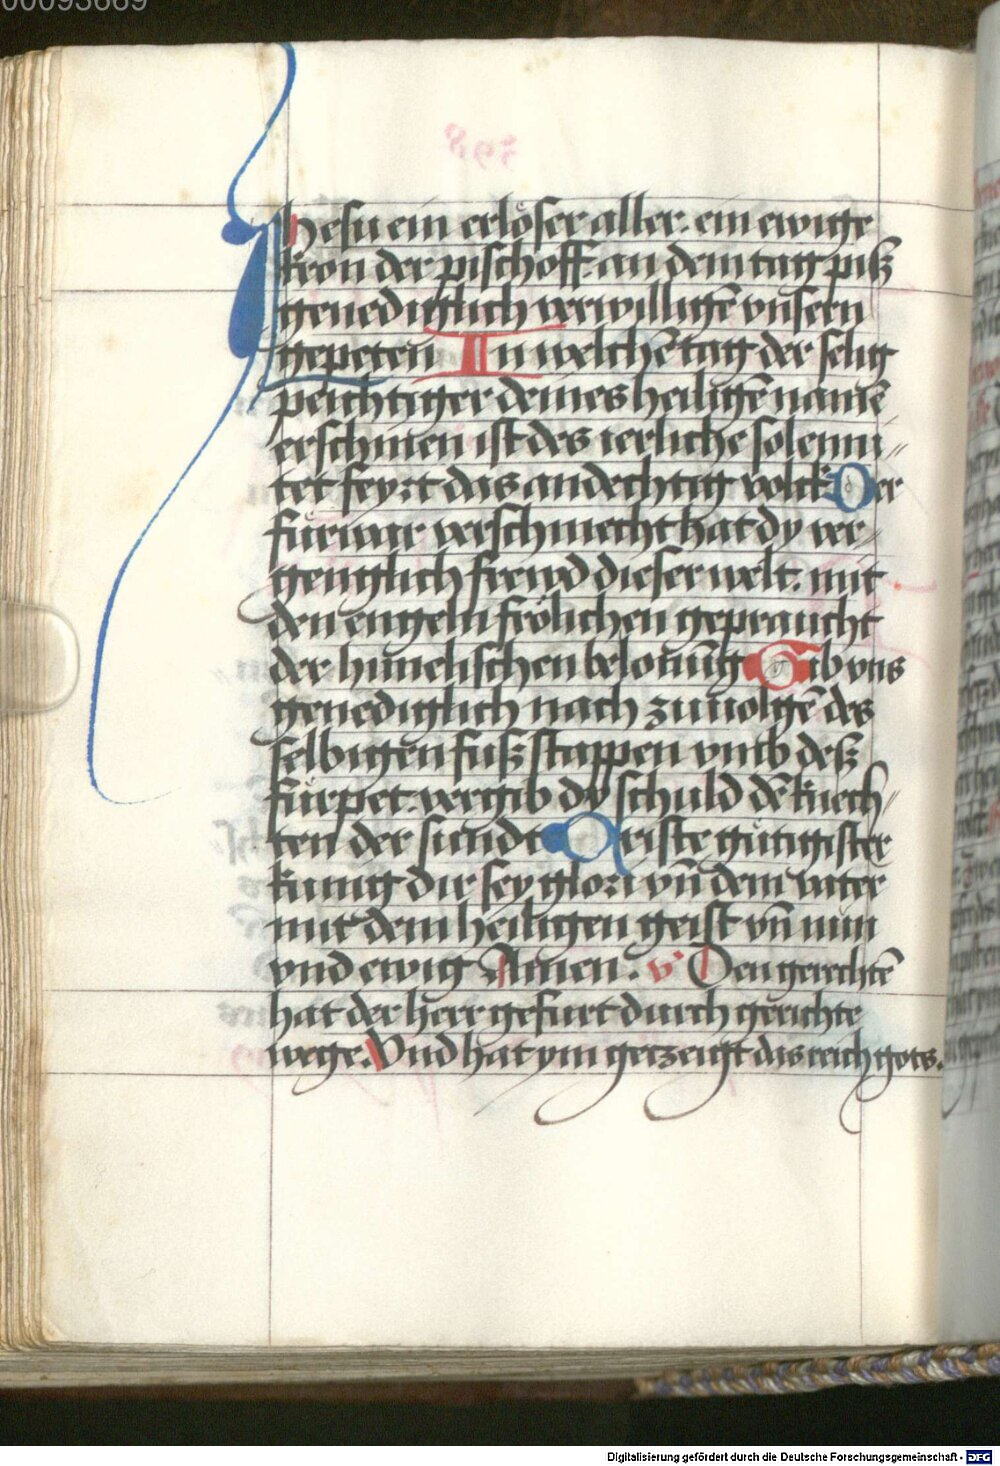 00093669
Jhesu ein erlöser aller: ein ewige
kron der pischoff an dem tag pisz
genediglich verwilligē vnsern
gepeten In welchē tag der selig
peichtiger deines heiligē namē
erschinen ist des ierliche solenni⸗
tet feyrt das andechtig volck Der
fürwar verschmecht hat dy ver⸗
genglich freud dieser welt: mit
den engeln frölichen gepraucht
der himelischen belonūg Gib vns
genediglich nach zuuolgē des
selbigen fuszstappen vmb desz
fürpet: vergib dy schuld dē knech⸗
ten der sündt Criste gütigister
kunig dir sey glori vn̄ dem vater
mit dem heiligen geist vn̄ nun
vnd ewig Amen. v' Den gerechtē
hat der herr gefurt durch gerichte
wege. Vnd hat ym getzeigt das reich gots.
Digitalisierung gefördert durch die Deutsche Forschungsgemeinschaft - DFG